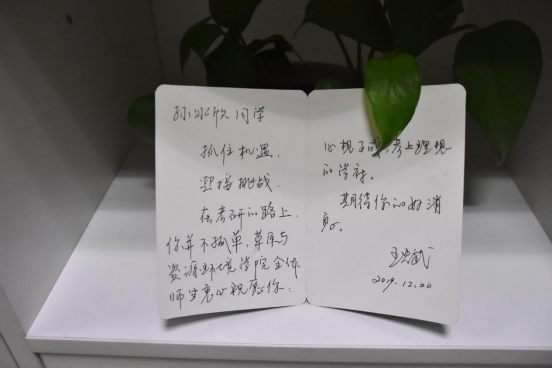 孙冰欣同学
抓住机遇,
迎接挑战.
在考研的路上,
你并不孤单,草原与
资源环境学院全体
师生衷心祝愿你:
心想事成,考上理想
的学校。
期待你的好消
息。
2019.12.20